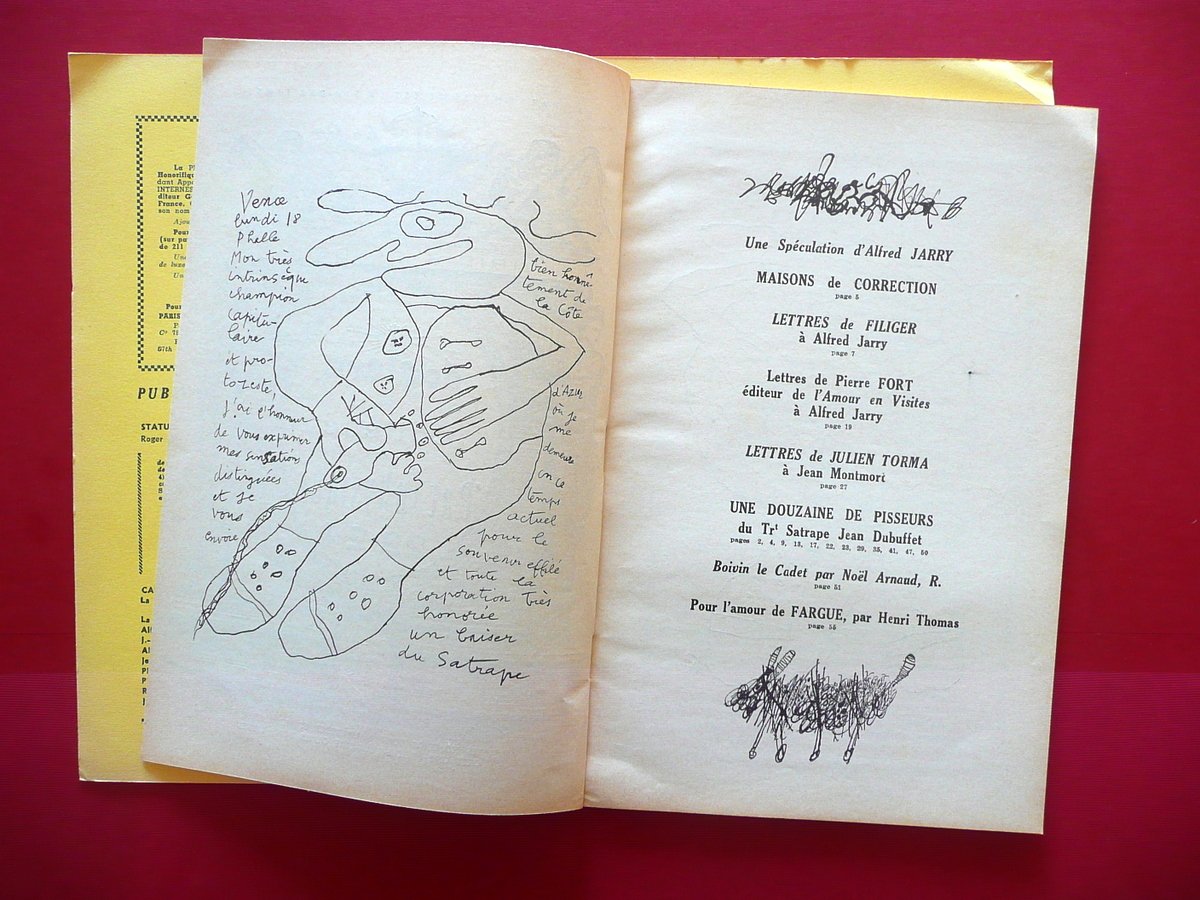 La P
Honorifiq
dant Appa
INTERNES
diteur G
France,
son nom
Ajou
Pour
(sur pa
de 211
Une
de luxe
Un
Pour
PARIS
P
C° 75
87th
PUB
STATU
Roger
CA
La
La
Alf
J.-
Al
Je
Pl
P
R
J
Vence
lundi 18
Phalle
Mon très
intrinsèque
champion
capitu-
laire
et pro-
tozeste,
j'ai l'honneur
de vous exprimer
mes sensations
distinguées
et je
vous
envoie
bien honnê-
tement de
la Côte
d'Azur
où je
me
demeure
en ce
temps
actuel
pour le
souvenir effilé
et toute la
corporation très
honorée
un baiser
du Satrape
Une Spéculation d'Alfred JARRY
MAISONS de CORRECTION
page 5
LETTRES de FILIGER
à Alfred Jarry
page 7
Lettres de Pierre FORT
éditeur de l'Amour en Visites
à Alfred Jarry
page 19
LETTRES de JULIEN TORMA
à Jean Montmort
page 27
UNE DOUZAINE DE PISSEURS
du Trt Satrape Jean Dubuffet
pages 2, 4, 9, 13, 17, 22, 23, 29, 35, 41, 47, 50
Boivin le Cadet par Noël Arnaud, R.
page 51
Pour l'amour de FARGUE, par Henri Thomas
page 55